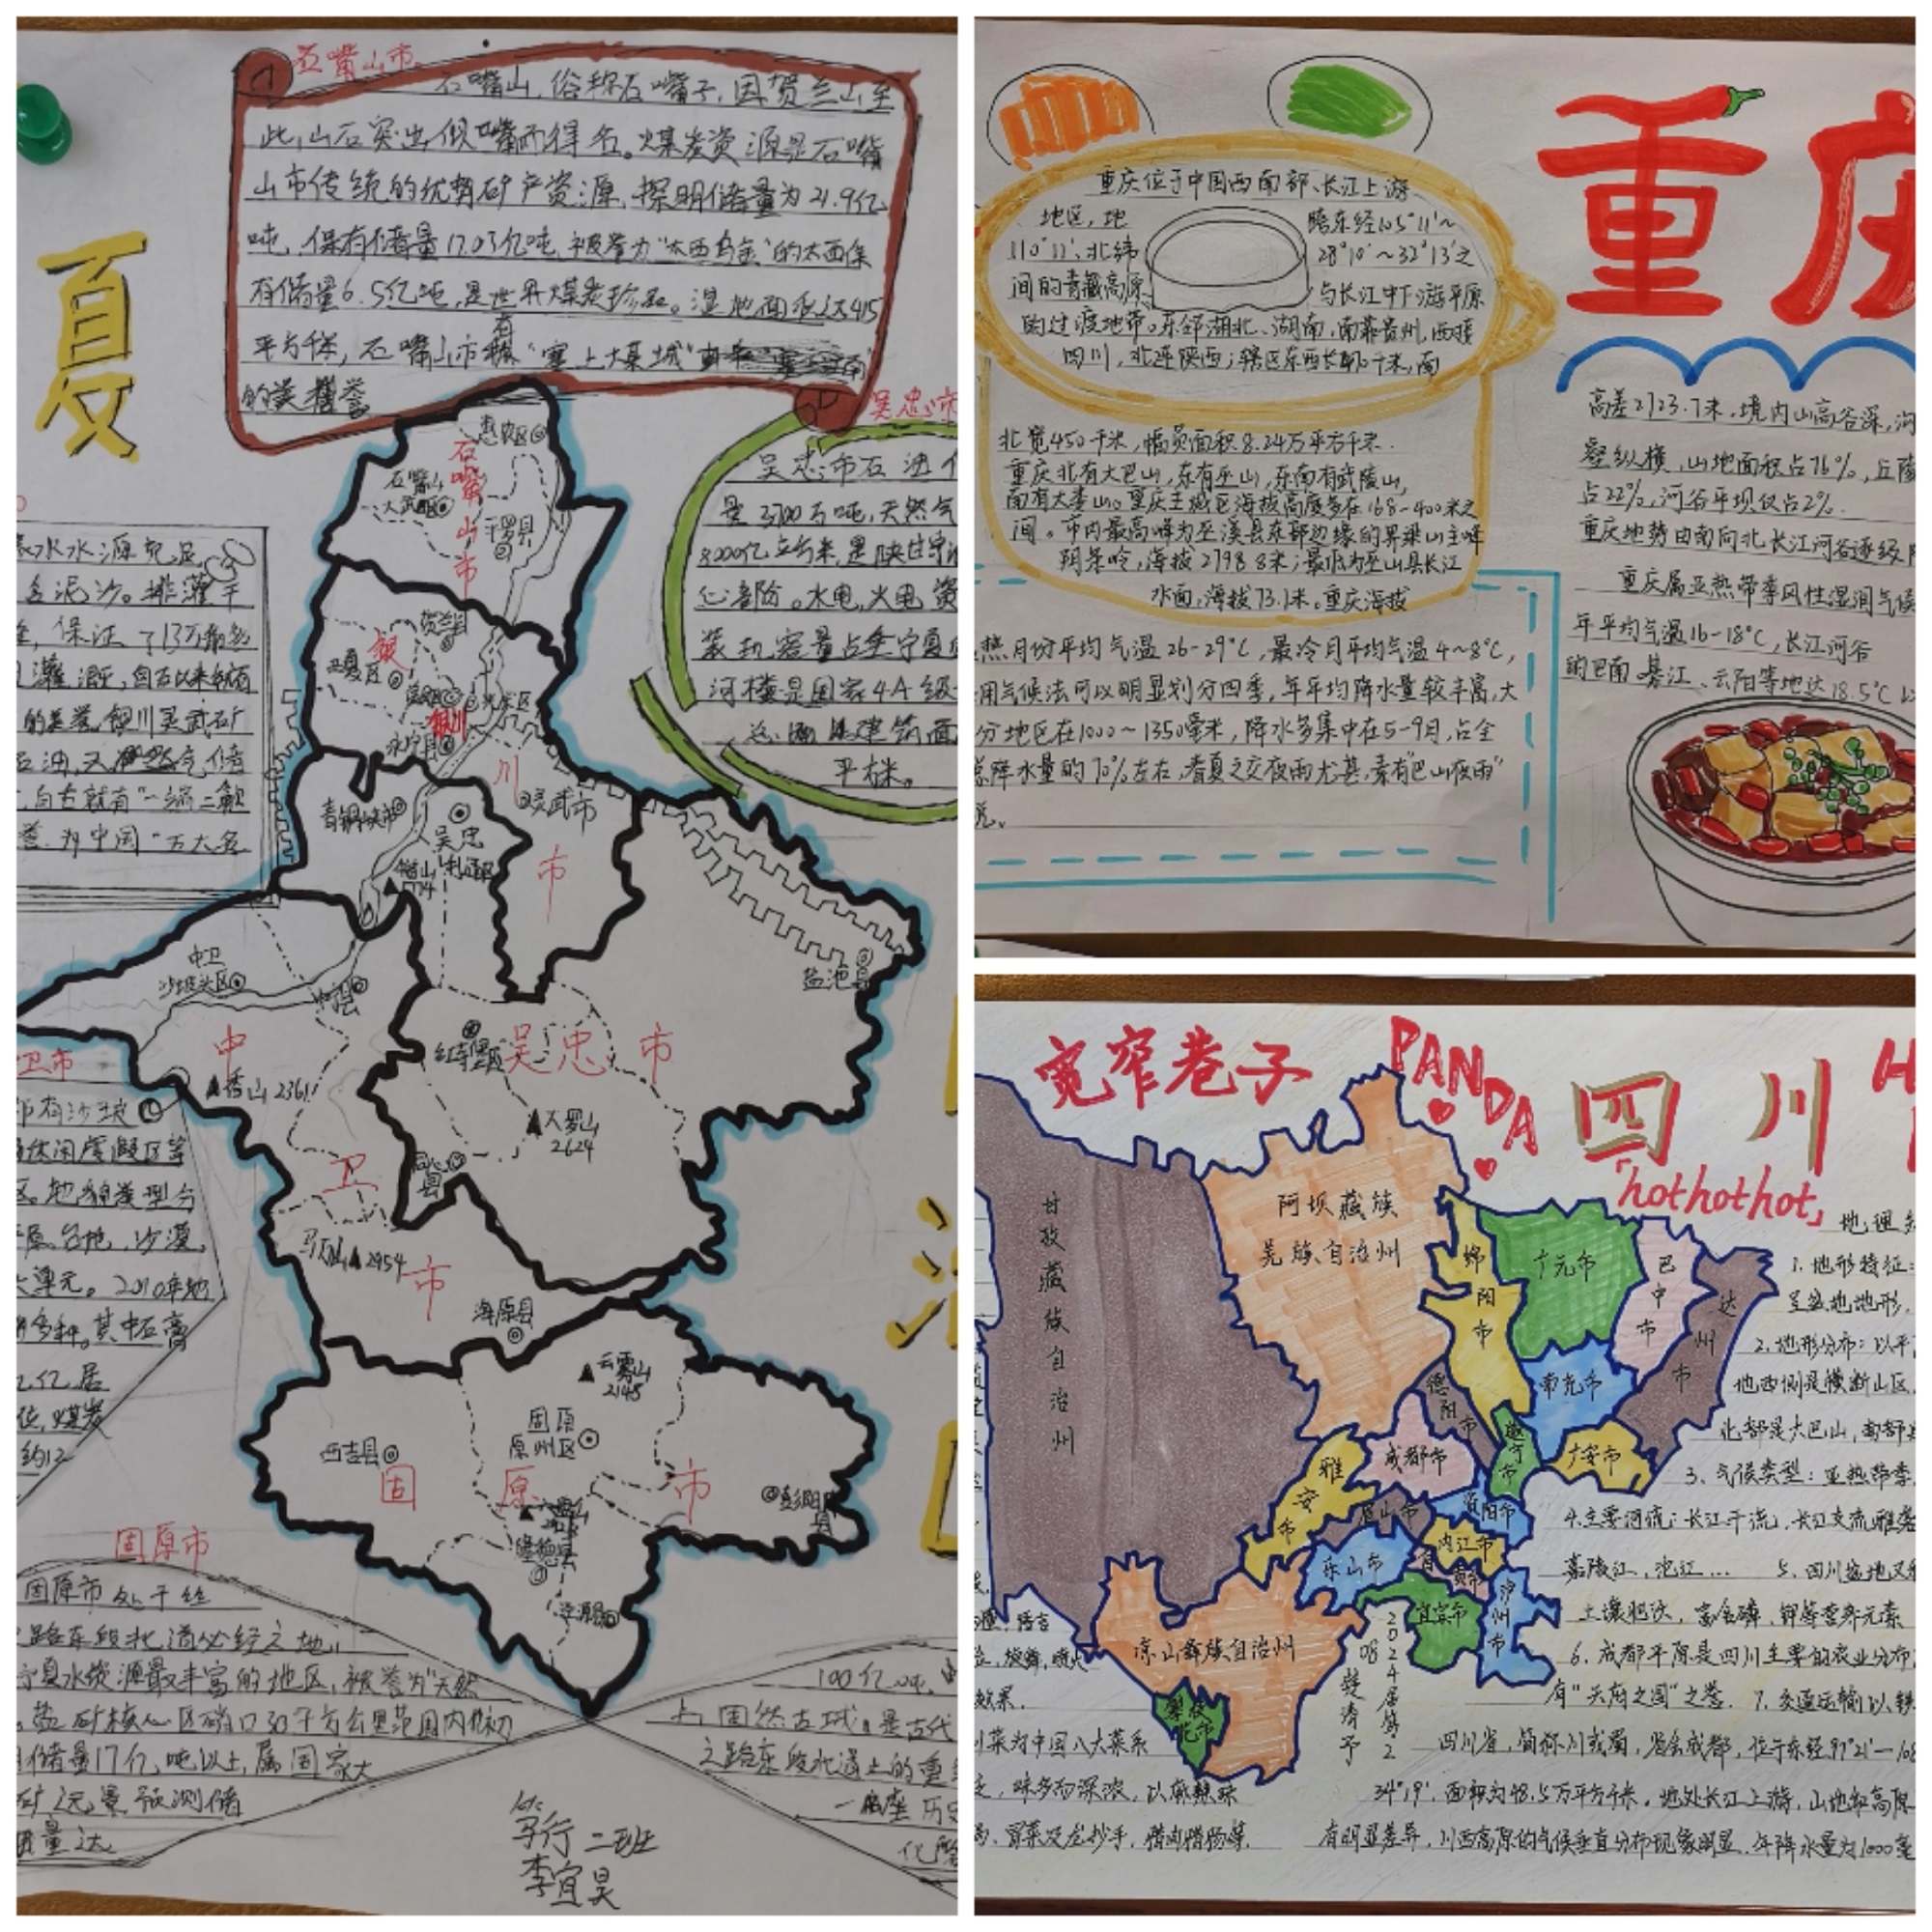 石嘴山市
石嘴山,俗称石嘴子,因贺兰山至
此,山石突出似嘴而得名。煤炭资源是石嘴
山市传统的优势矿产资源,探明储量为21.9亿
吨,保有储量17.03亿吨,被誉为"太西乌金"的太西保
有储量6.5亿吨,是世界煤炭珍品。湿地面积达415
平方千米,石嘴山市有"塞上煤城"
的美誉
夏
吴忠市
吴忠市石油
是3700万吨,天然气
8000亿立方米,是陕甘宁
心音阶。水电,火电资
装机容量占全宁夏
河楼是国家4A级
总 建筑面
平方米。
水水源充足
含泥沙。排灌干
保证了13万亩
灌溉,自古以来就有
的美誉,银川灵武矿
石油,天然气储
自古就有"一
誉,为中国"万大名
惠农区
石嘴山
大武口区
平罗县
石嘴山市
贺兰县
西夏区
金凤区
兴庆区
永宁县
银川
银川市
灵武市
青铜峡市
吴忠
利通区
1774
盐池县
中卫
沙坡头区
中宁县
红寺堡区
吴忠市
香山2361
大罗山
2624
同心县
中卫市
马万山2954
海原县
云雾山
2148
固原
原州区
西吉县
固原市
彭阳县
隆德县
泾源县
卫市
有沙坡
休闲度假区等
区。地貌类型分
原,台地,沙漠,
大单元。2010年地
多种。其中石膏
亿,居
位,煤炭
约12
固原市
固原市处于丝
路东段北道必经之地。
宁夏水资源最丰富的地区,被誉为"天然
盐矿核心区硝口30平方公里范围内初
储量17亿吨以上,属国家大
矿
量达
100亿吨,
上,固然古城,是古代
之路东段北道上的重
一座历史
化
学行二班
李宜昊
重庆
重庆位于中国西南部、长江上游
地区,地 跨东经105°11′~
110°11′、北纬 28°10′~32°13′之
间的青藏高原 与长江中下游平原
的过渡地带。东邻湖北、湖南,南靠贵州,西接
四川,北连陕西;辖区东西长470千米,南
北宽450千米,幅员面积8.24万平方千米.
重庆北有大巴山,东有巫山,东南有武陵山,
南有大娄山。重庆主城区海拔高度多在168-400米之
间。市内最高峰为巫溪县东部边缘的界梁山主峰
阴条岭,海拔2798.8米;最低为巫山县长江
水面,海拔73.1米。重庆海拔
高差2723.7米.境内山高谷深,沟
壑纵横,山地面积占76%,丘陵
占22%,河谷平坝仅占2%.
重庆地势由南向北长江河谷逐级
重庆属亚热带季风性湿润气候
年平均气温16-18°C,长江河谷
的巴南、綦江、云阳等地达18.5°C以
热月份平均气温26-29°C,最冷月平均气温4~8°C,
用气候法可以明显划分四季,年平均降水量较丰富,大
分地区在1000~1350毫米,降水多集中在5-9月,占全
总降水量的70%左右,春夏之交夜雨尤甚,素有"巴山夜雨"
说。
宽窄巷子
PANDA
四川
「hothothot」
甘孜藏族自治州
阿坝藏族
羌族自治州
绵阳市
广元市
巴中市
达州市
南充市
德阳市
成都市
遂宁市
广安市
雅安市
眉山市
资阳市
内江市
自贡市
乐山市
宜宾市
泸州市
凉山彝族自治州
攀枝花市
2024届第2
08 楚涛予
1.地形特征:
呈盆地地形,
2.地形分布:以平
地西侧是横断山区,
北部是大巴山,南部
3.气候类型:亚热带季
4.主要河流:长江干流,长江支流雅砻
嘉陵江,沱江... 5.四川盆地又
土壤肥沃,富含磷、钾等营养元素
6.成都平原是四川主要的农业分布
有"天府之国"之誉. 7.交通运输以铁
四川省,简称川或蜀,省会成都,位于东经97°21′—108
34°19′.面积为48.5万平方千米,地处长江上游,山地和高原
有明显差异,川西高原的气候垂直分布现象明显.年降水量为1000毫
川菜为中国八大菜系
味多而深浓,以麻辣味
冒菜及龙抄手,腊肉腊肠等.